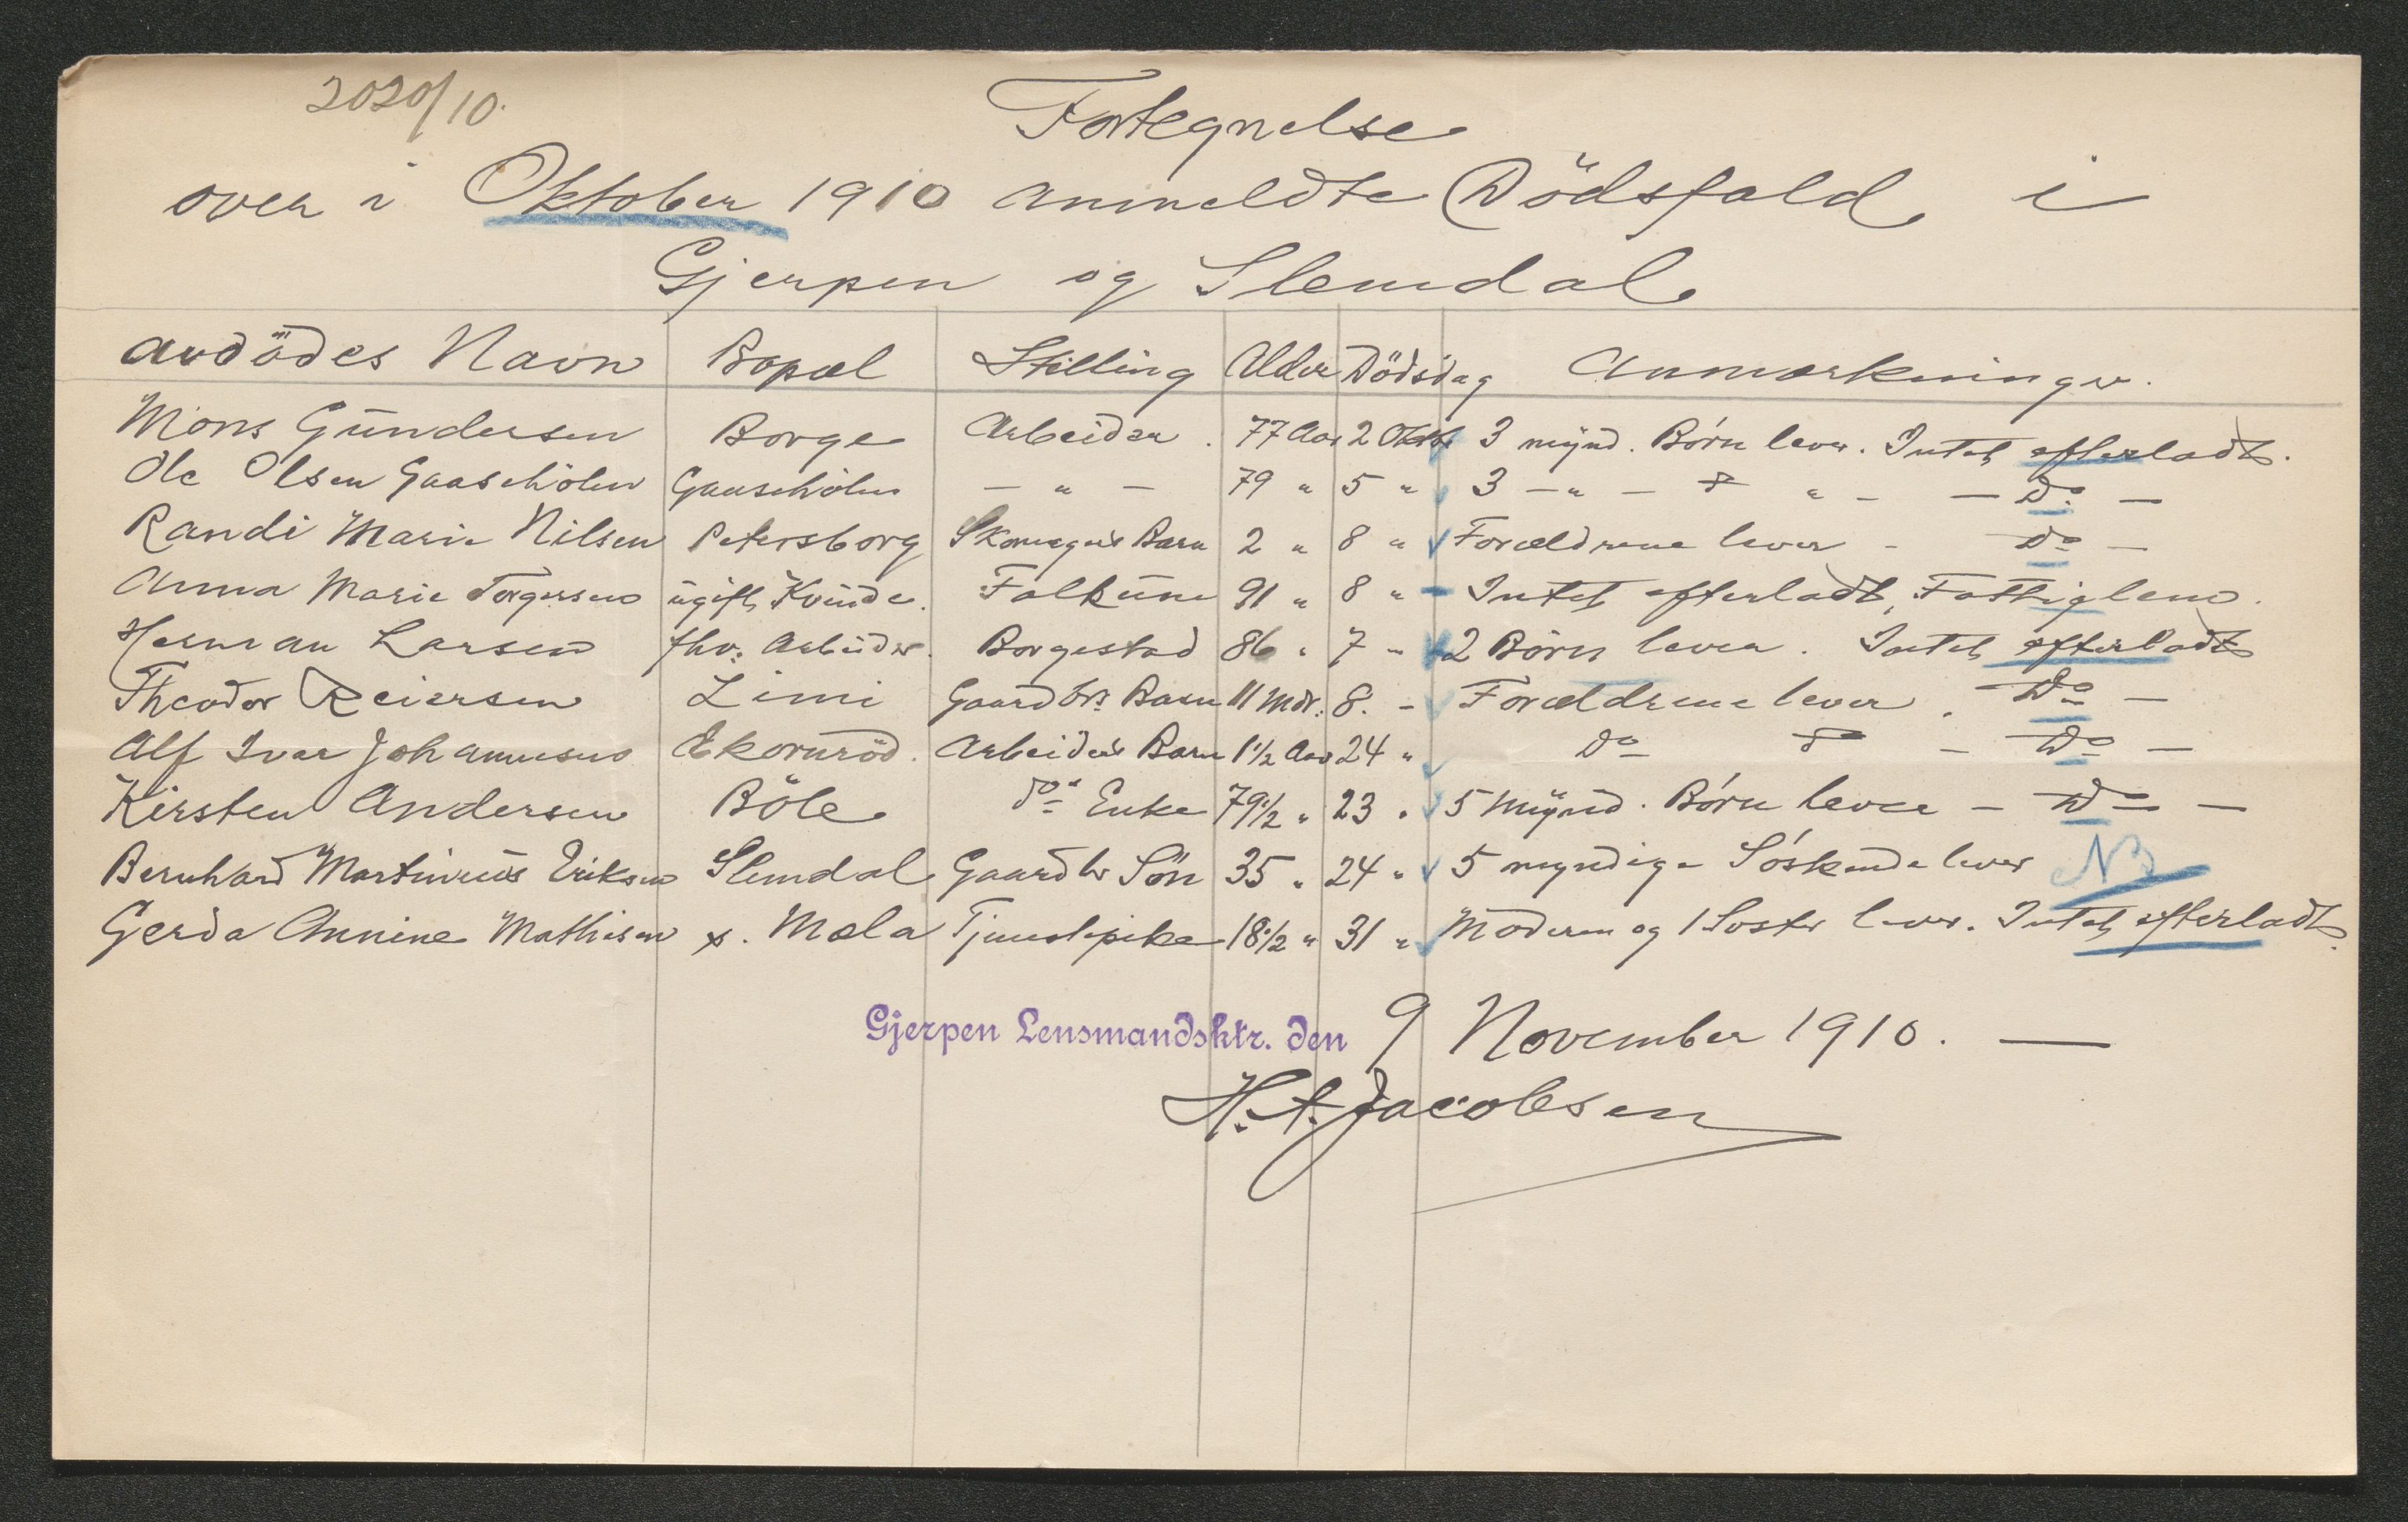 2020/10.
Fortegnelse
over i Oktober 1910 anmeldte Dödsfald i
Gjerpen og Slemdal
Avdödes Navn Bopæl Stilling Alder Dödsdag Anmærkninger.
Mons Gundersen Borge Arbeider. 77 Aar 2 Oktbr 3 mynd. Børn lever. Intet efterladt.
Ole Olsen Gaasehölen Gaasehölen — " — 79 " 5 " 3 — " — " — — Do —
Randi Marie Nilsen Petersborg Skomagers Barn 2 " 8 " Forældrene lever - Do —
Anna Marie Torgersen ugift Kvinde. Falkum 91 " 8 " - Intet efterladt, Fattiglem.
Herman Larsen fhv: Arbeider. Borgestad 86 " 7 " 2 Børn lever. Intet efterladt
Theodor Reiersen Limi Gaardbrs Barn 11 Mdr. 8. - Forældrene lever. - Do —
Alf Ivar Johannesen Ekornröd. Arbeiders Barn 1 1/2 Aar 24 " Do — Do —
Kirsten Andersen Böle do " Enke 79 1/2 " 23 " 5 Mynd. Børn lever — Do —
Bernhard Martinius Eriksen Slemdal Gaardbr Sön 35 " 24 " 5 myndige Søskende lever NB
Gerda Annine Mathisen x. Mæla Tjenestepike 18 1/2 " 31 " Moderen og 1 Søster lever. Intet efterladt.
Gjerpen Lensmandsktr. den 9 November 1910. —
H. A. Jacobsen